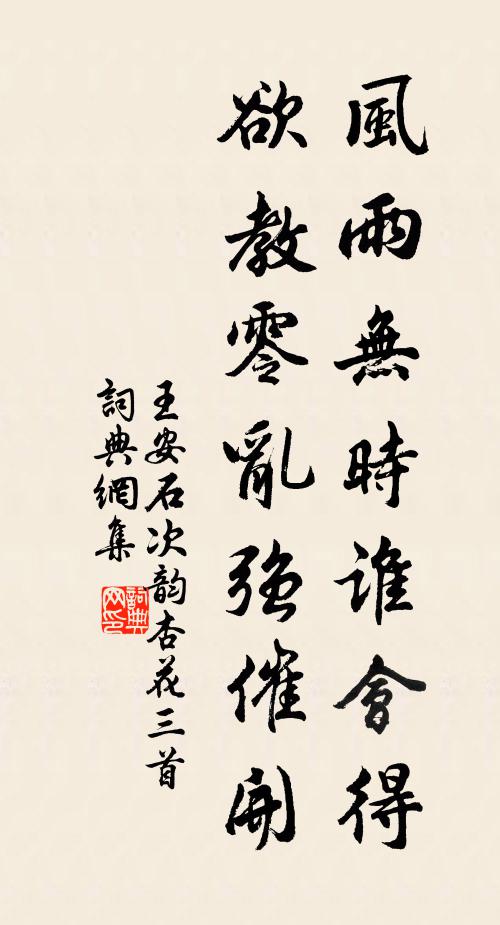 風雨無時誰會得
欲教零亂強催開
王安石次韵杏花三首
詞典網集
詞典网印